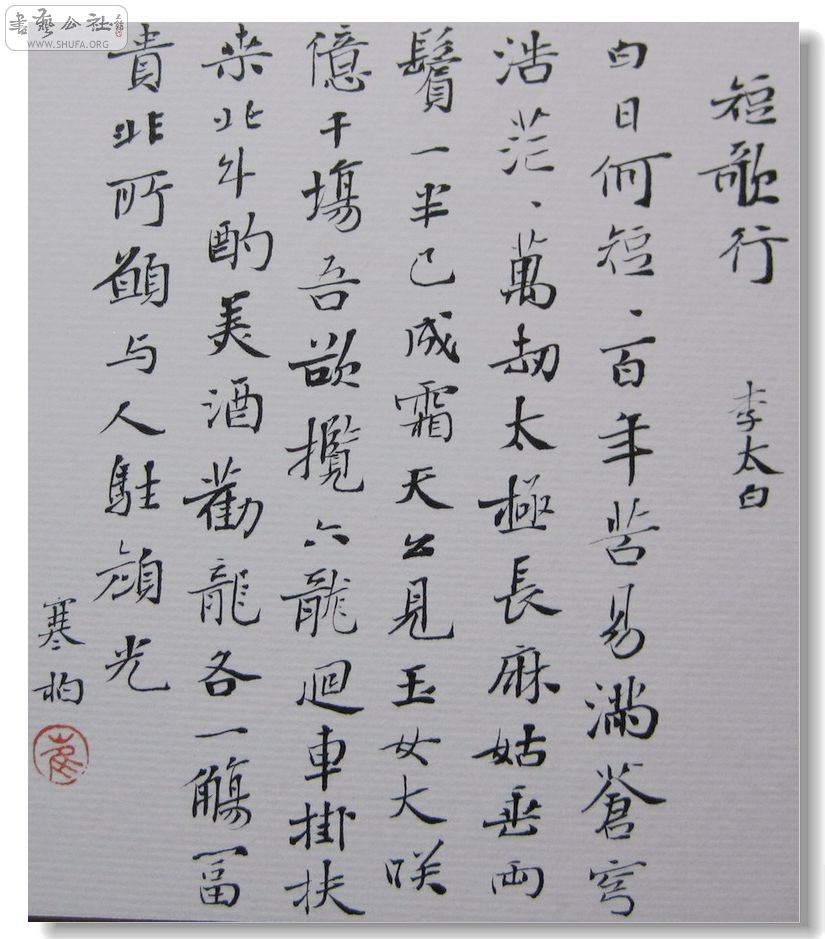 短歌行 李太白
白日何短、百年苦易滿蒼穹
浩茫、萬劫太極長麻姑垂兩
鬢一半已成霜天公見玉女大咲
億千場吾欲攬六龍迴車掛扶
桒北斗酌美酒勸龍各一觴冨
貴非所願与人駐顔光
寒柏
書藝公社
WWW.SHUFA.ORG